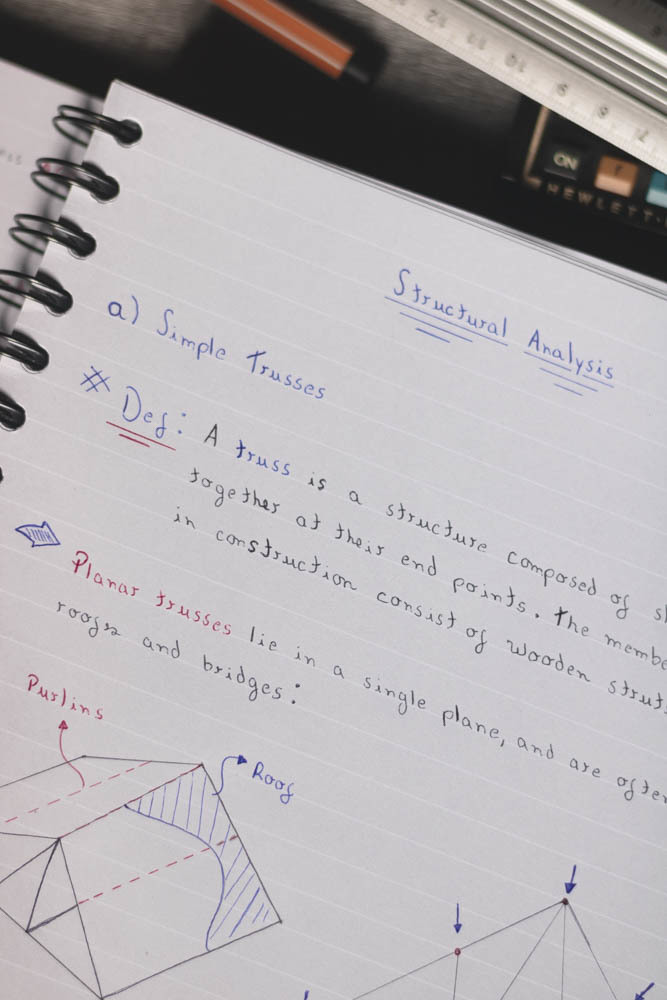 12 11 10 9 8 7
ON
HEWLETT
Structural Analysis
a) Simple Trusses
* Def: A truss is a structure composed of
together at their end points. The
in construction consist of wooden struts
Planar trusses lie in a single plane, and are often
roofs and bridges:
Purlins
Roof